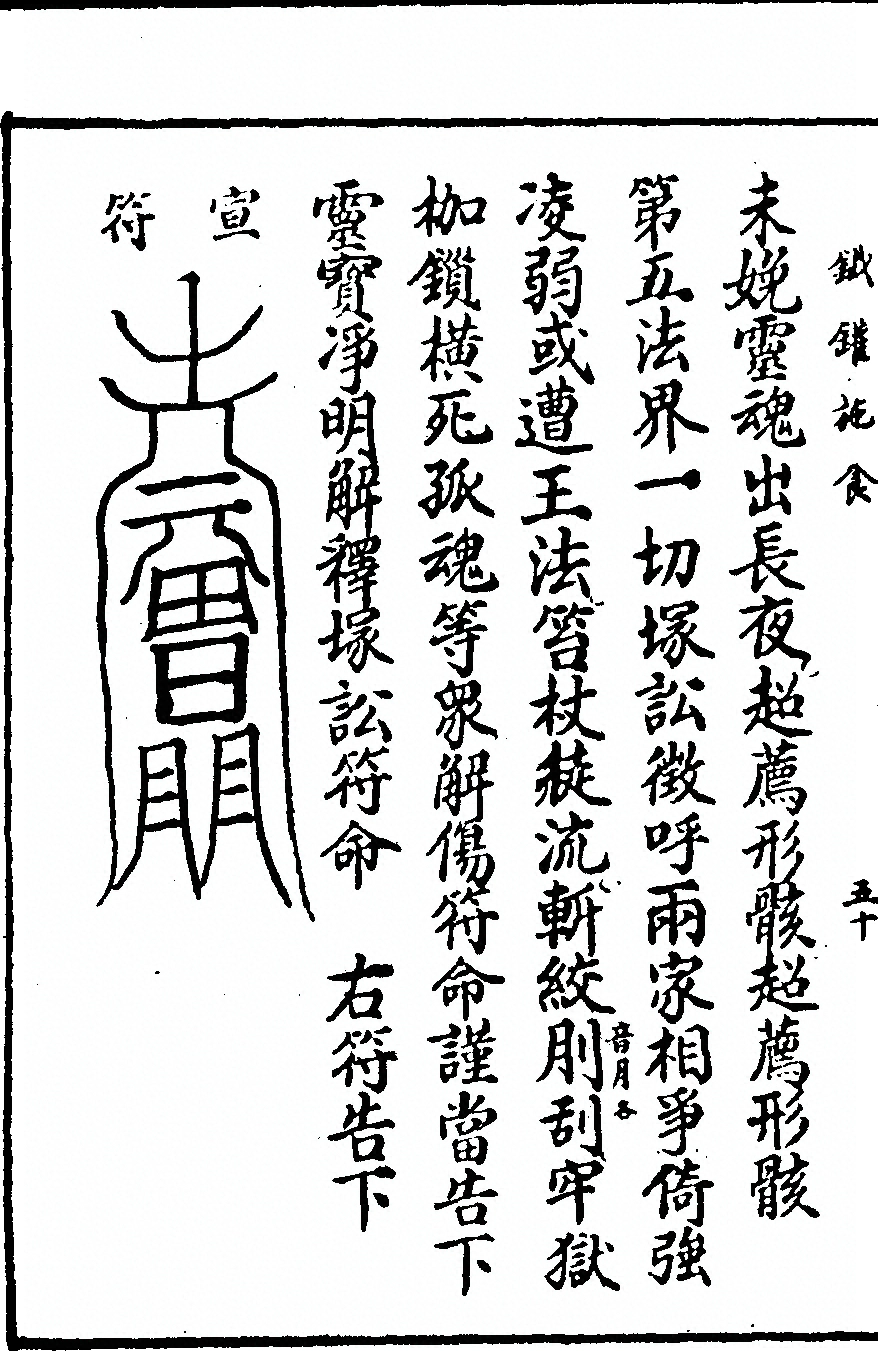 鐵鑵施食　五十
未娩靈魂出長夜超薦形骸超薦形骸
第五法界一切塚訟徵呼兩家相爭倚強
凌弱或遭王法笞杖徒流斬絞刖刮牢獄
音月 各
枷鎖橫死孤魂等眾解傷符命謹當告下
靈寶淨明解釋塚訟符命　右符告下
宣符